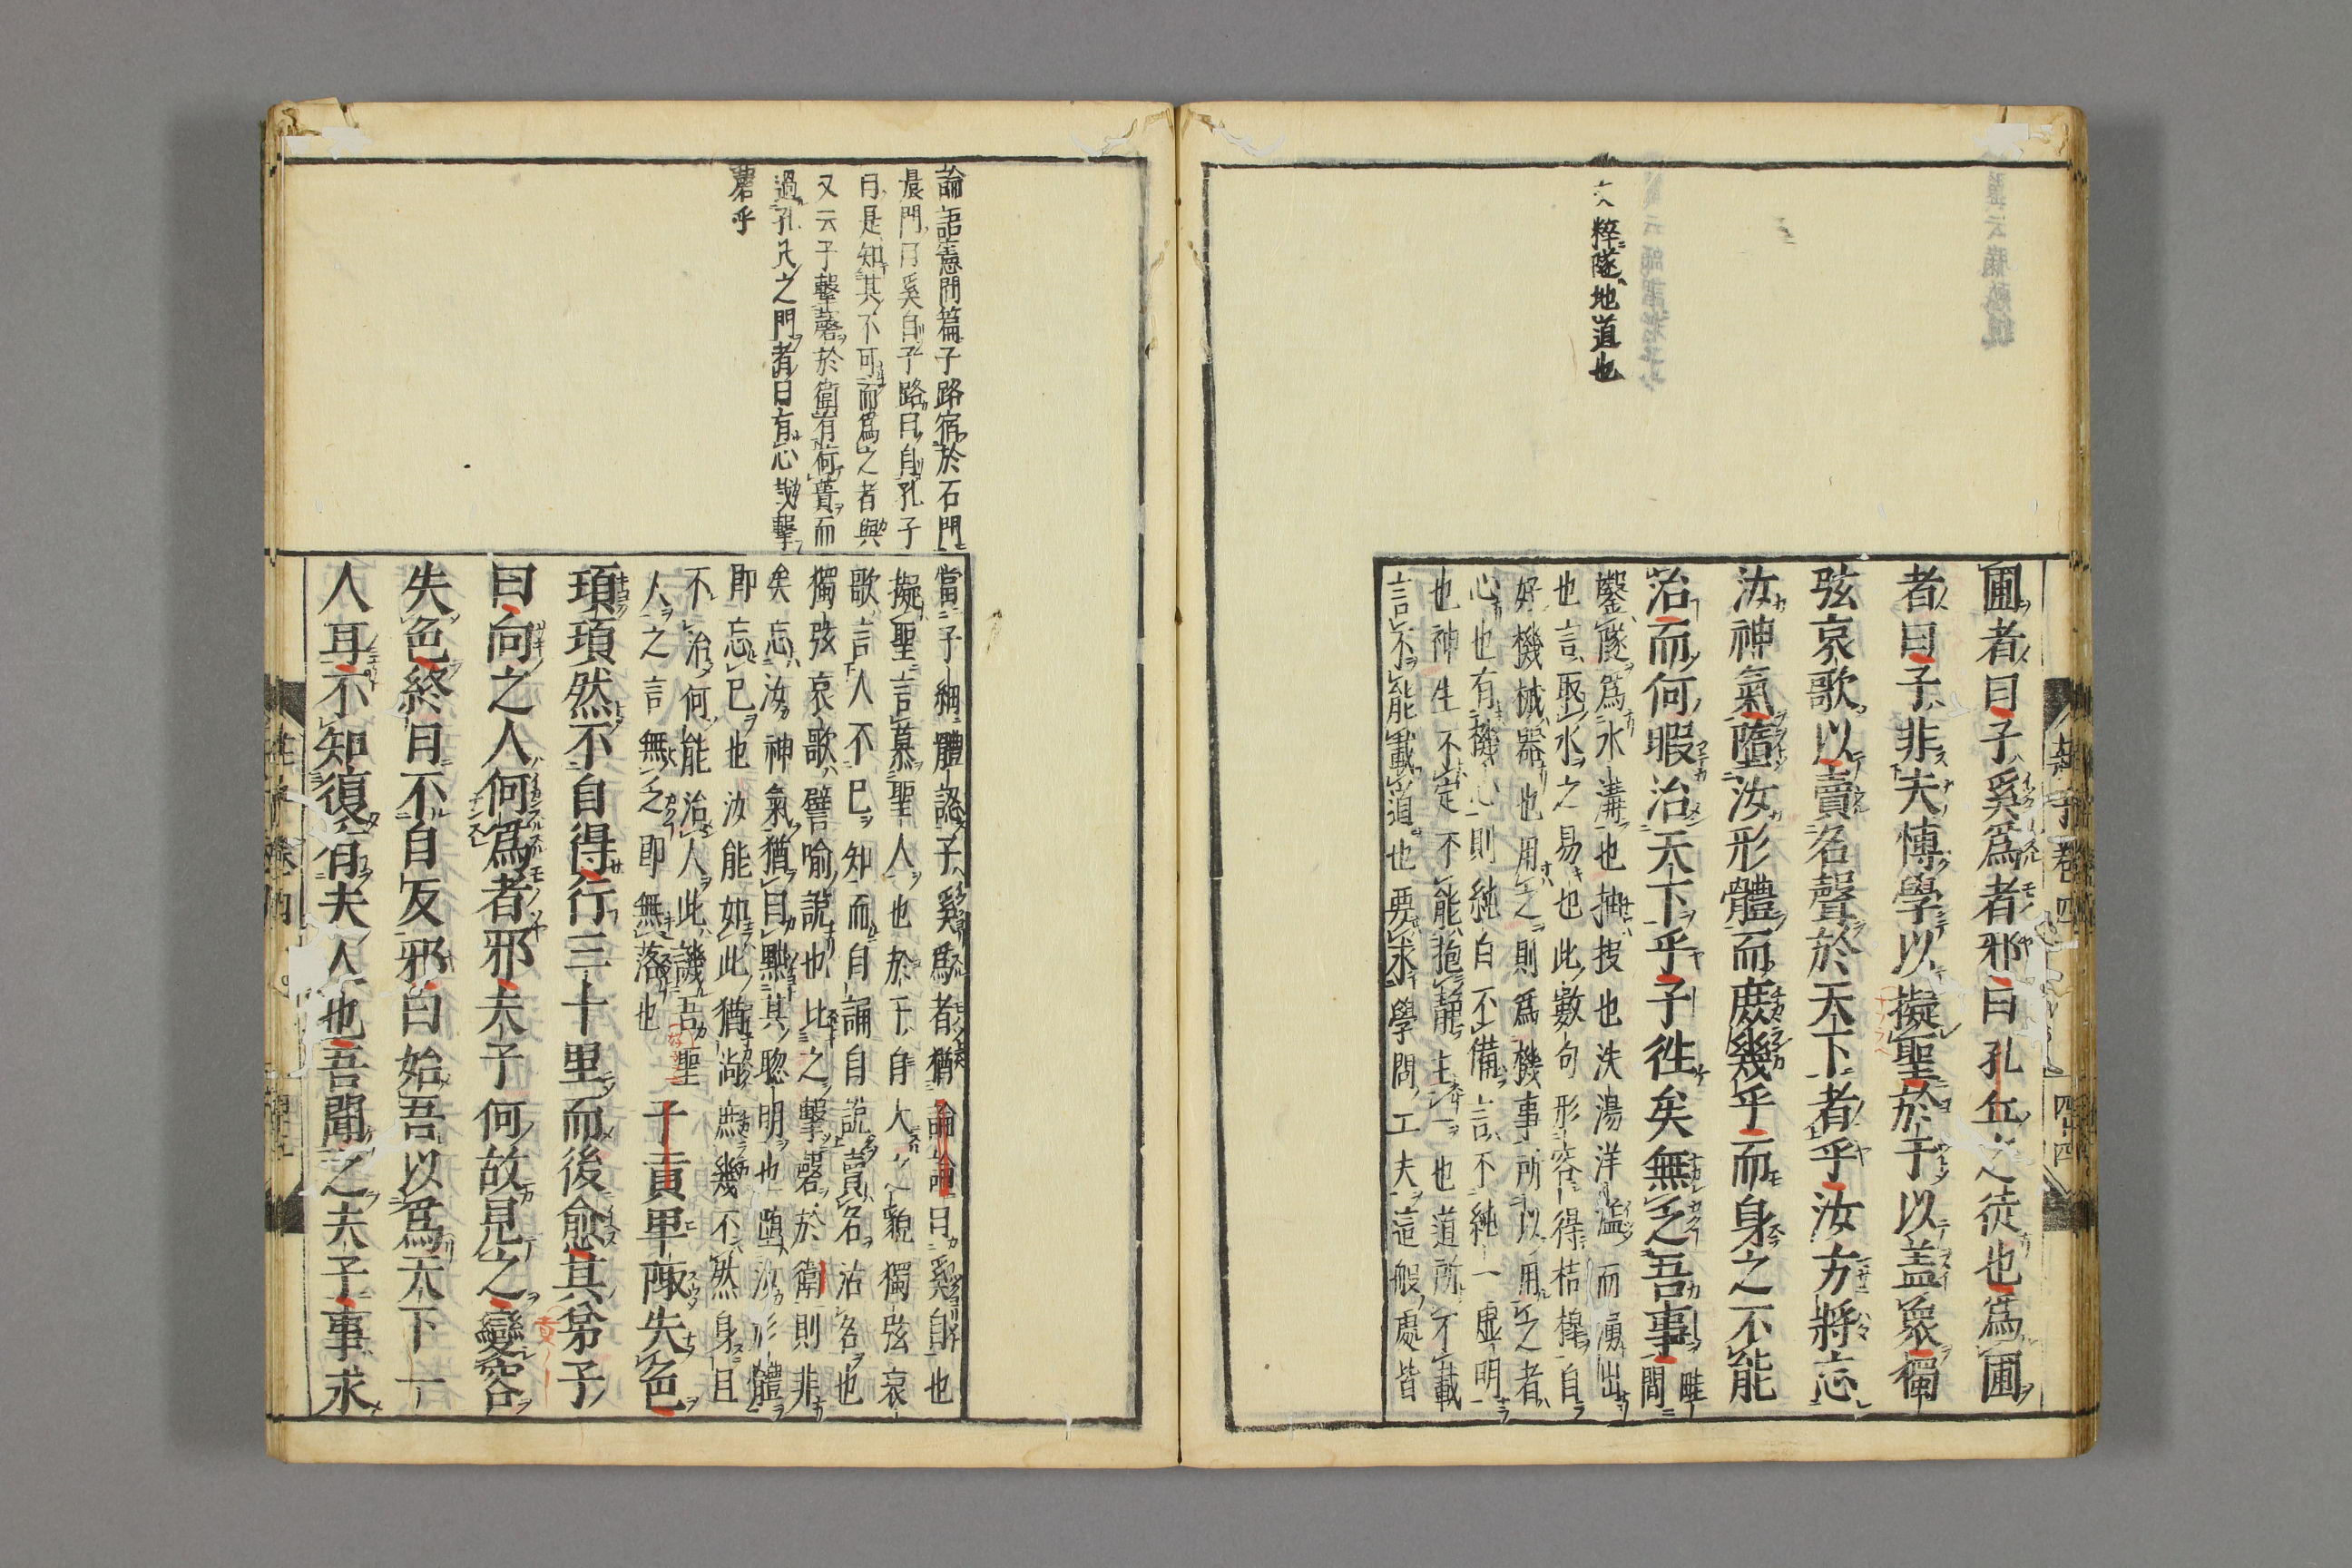 文粹隧地道也
圃者曰子奚爲者邪曰孔丘之徒也爲圃
者曰子非夫愽學以擬聖於于以盖衆獨
弦哀歌以賣名聲於天下者乎汝方將忘
汝神氣墮汝形體而庶幾乎而身之不能
治而何暇治天下乎子徃矣無乏吾事畦間
鑿隧爲水溝也抽拔也泆湯洋溢而湧出
也言取水之易也此數句形容得桔槹自
好機械器也用之則爲機事所以用之者
心也有機心則純白不備言不純一虚明
也神生不定不能抱靜主一也道所不載
言不能載道也要求學問工夫這般處皆
莊子卷四
四十四
論語憲問篇子路宿於石門
晨門曰奚自子路曰自孔子
曰是知其不可而爲之者與
又云子擊磬於衛有荷蕢而
過孔氏之門者曰有心哉擊
磬乎
當子細體認子奚爲者猶論論曰奚自也
擬聖言慕聖人也於于自大之貌獨弦哀
歌言人不已知而自誦自說賣名沽名也
獨弦哀歌譬喻說也比之擊磬於衛則非
矣忘汝神氣猶曰黜其聰明也墮汝形體
即忘已也汝能如此猶湖庶幾不然身且
不治何能治人此譏吾聖
人之言無乏即無落也子貢卑陬失色
頊頊然不自得行三十里而後愈其弟子
曰向之人何爲者邪夫子何故見之變容
失色終日不自反邪曰始吾以爲天下一
人耳不知復有夫人也吾聞之夫子事求